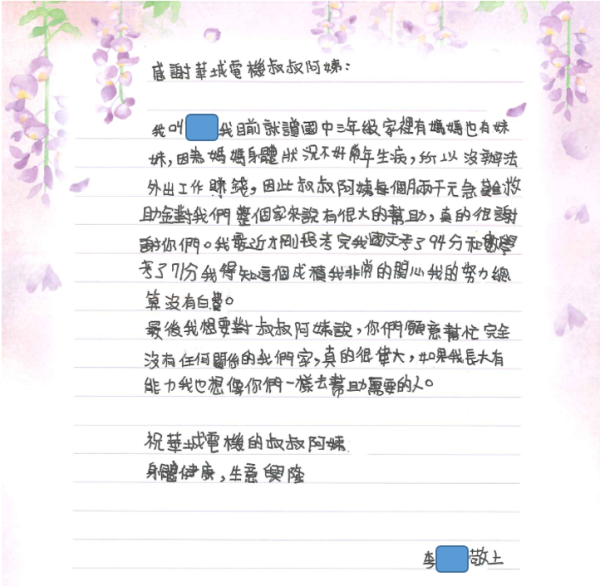 感謝華城電機叔叔阿姨：
我叫我目前就讀國中三年級家裡有媽媽也有妹
妹，因為媽媽身體狀況不好常年生病，所以沒辦法
外出工作賺錢，因此叔叔阿姨每個月兩千元急難救
助金對我們整個家來說有很大的幫助，真的很謝
謝你們。我最近才剛段考完我國文考了94分和數學
考了71分我得知這個成積我非常的開心我的努力總
算沒有白費。
最後我想要對叔叔阿姨說，你們願意幫忙完全
沒有任何關係的我們家，真的很偉大，如果我長大有
能力我也想像你們一樣去幫助需要的人。
祝華城電機的叔叔阿姨
身體健康，生意興隆
李敬上